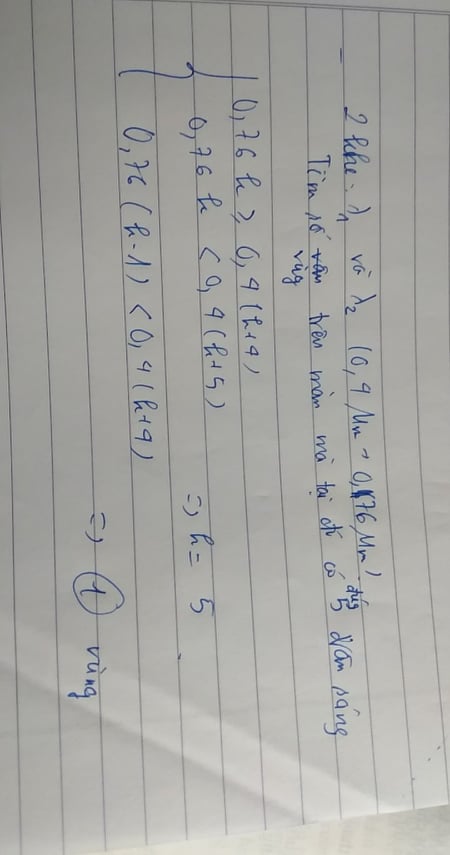 - 2 khe: λ1 và λ2 (0,4 μm → 0,76 μm)
Tìm số vùng trên màn mà tại đó có đúng 5 vân sáng
{ 0,76 k ≥ 0,4 (k+4)
0,76 k < 0,4 (k+5) => k = 5
0,76 (k-1) < 0,4 (k+4)
=> 1 vùng